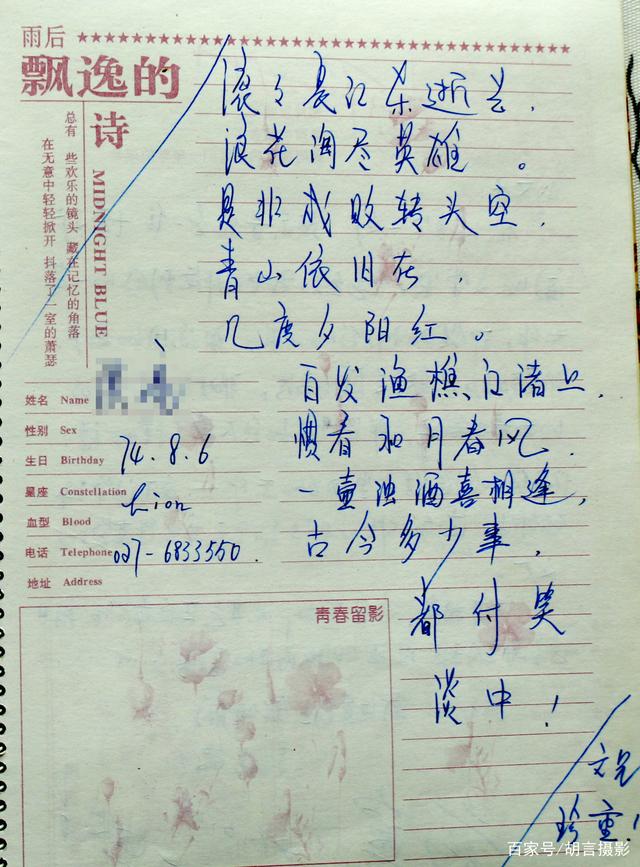 雨后
飘逸的
诗
MIDNIGHT BLUE
总有 些欢乐的镜头 藏在记忆的角落
在无意中轻轻掀开 抖落了一室的萧瑟
滚々長江东逝兰，
浪花淘尽英雄。
是非成败转头空，
青山依旧在，
几度夕阳红。
白发渔樵江渚上，
惯看秋月春风．
一壶浊酒喜相逢，
古今多少事，
都付笑
谈中！
文兄
珍重！
姓名 Name
性别 Sex
生日 Birthday 74.8.6
星座 Constellation Lion
血型 Blood
电话 Telephone 027-6833550.
地址 Address
青春留影
百家号/胡言摄影